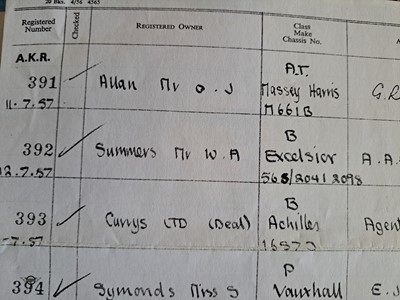 20 Bks. 4/56 4565
Registered Number Checked REGISTERED OWNER Class Make Chassis No. A
A.K.R.
391 Allan Mr O. J A.T. Massey Harris G.R
11.7.57 M661B
392 Summers Mr W. A B Excelsior A.A.
12.7.57 568/2041 2098
393 Currys LTD (Deal) B Achilles Agent
-7.57
394 Symonds Miss S P Vauxhall E.J